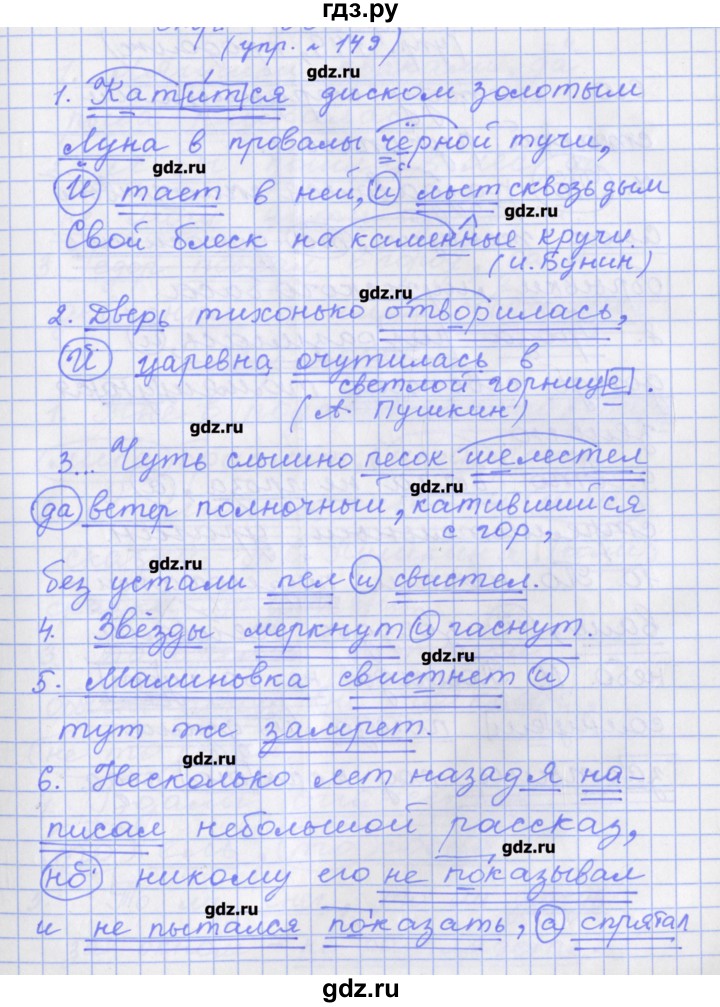 гдз.ру
(упр. № 149)
gdz.ru
1. Катится диском золотым
Луна в провалы чёрной тучи,
gdz.ru
с
И тает в ней, и льёт сквозь дым
gdz.ru
Свой блеск на каменные кручи.
(И. Бунин)
gdz.ru
2. Дверь тихонько отворилась,
И царевна очутилась в
светлой горнице.
(А. Пушкин)
gdz.ru
3... Чуть слышно песок шелестел
gdz.ru
да ветер полночный, катившийся
с гор,
gdz.ru
без устали пел и свистел.
4. Звёзды меркнут и гаснут.
gdz.ru
5. Малиновка свистнет и
тут же замрет.
gdz.ru
6. Несколько лет назад я на-
писал небольшой рассказ,
gdz.ru
но никому его не показывал
gdz.ru
и не пытался показать, а спрятал
gdz.ru